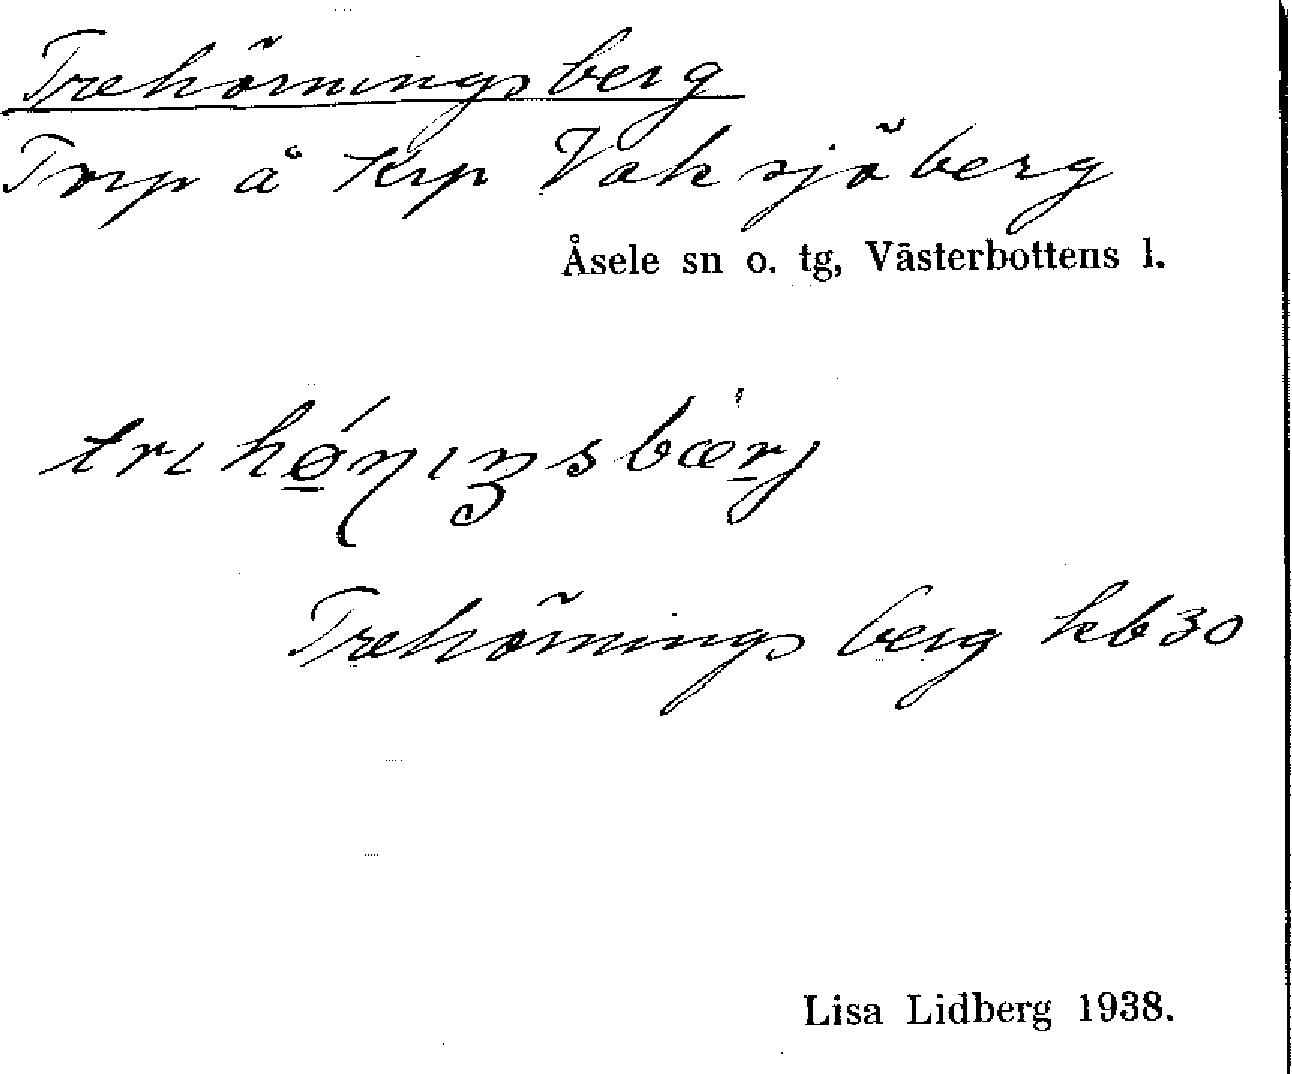 Trehörningsberg
Torp å krp Vaksjöberg
Åsele sn o. tg, Västerbottens l.
Trehörningsberg kb 30
Lisa Lidberg 1938.